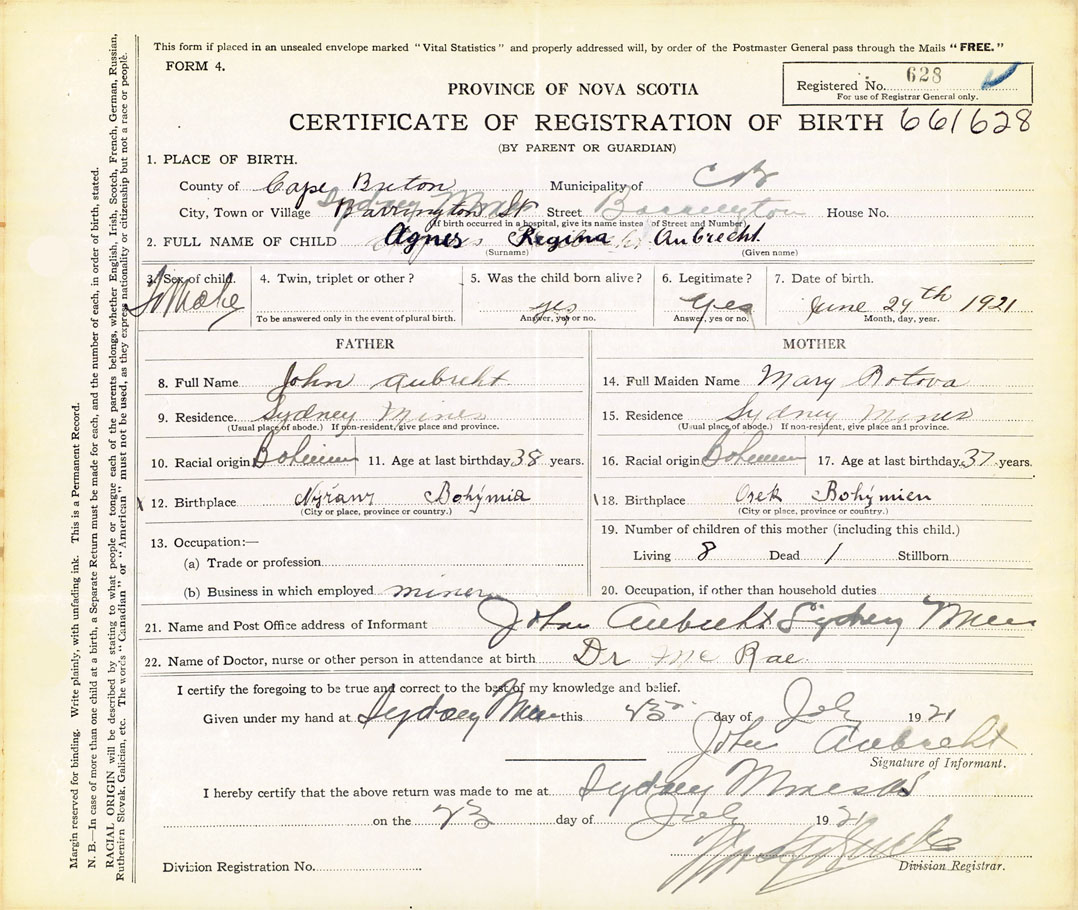 This form if placed in an unsealed envelope marked "Vital Statistics" and properly addressed will, by order of the Postmaster General pass through the Mails "FREE."
FORM 4.
Registered No. 628
For use of Registrar General only.
PROVINCE OF NOVA SCOTIA
CERTIFICATE OF REGISTRATION OF BIRTH 661628
(BY PARENT OR GUARDIAN)
1. PLACE OF BIRTH.
County of Cape Breton Municipality of CB
Sydney Mines
City, Town or Village Barrington St Street Barrington House No.
(If birth occurred in a hospital, give its name instead of Street and Number)
2. FULL NAME OF CHILD Agnes Regina Aubrecht.
(Surname) (Given name)
3. Sex of child. 4. Twin, triplet or other? 5. Was the child born alive? 6. Legitimate? 7. Date of birth.
yes Yes June 29th 1921
To be answered only in the event of plural birth. Answer, yes or no. Answer, yes or no. Month, day, year.
FATHER MOTHER
8. Full Name John Aubrecht 14. Full Maiden Name Mary Rotova
9. Residence. Sydney Mines 15. Residence Sydney Mines
(Usual place of abode.) If non-resident, give place and province. (Usual place of abode.) If non-resident, give place and province.
10. Racial origin 11. Age at last birthday 38 years. 16. Racial origin 17. Age at last birthday 37 years.
12. Birthplace Nýřany Bohýmia 18. Birthplace Osek Bohýmien
(City or place, province or country.) (City or place, province or country.)
13. Occupation:— 19. Number of children of this mother (including this child.)
(a) Trade or profession Living 8 Dead 1 Stillborn
(b) Business in which employed miner 20. Occupation, if other than household duties
21. Name and Post Office address of Informant John Aubrecht Sydney Mines
22. Name of Doctor, nurse or other person in attendance at birth Dr Mc Rae
I certify the foregoing to be true and correct to the best of my knowledge and belief.
Given under my hand at Sydney Mines this 23 day of July 1921
John Aubrecht
Signature of Informant.
I hereby certify that the above return was made to me at Sydney Mines
on the 23 day of July 1921
Division Registration No. Division Registrar.
Margin reserved for binding. Write plainly, with unfading ink. This is a Permanent Record.
N. B.—In case of more than one child at a birth, a Separate Return must be made for each, and the number of each, in order of birth, stated.
RACIAL ORIGIN will be described by stating to what people or tongue each of the parents belongs, whether English, Irish, Scotch, French, German, Russian,
Ruthenian Slovak, Galician, etc. The words "Canadian" or "American" must not be used, as they express nationality or citizenship but not a race or people.